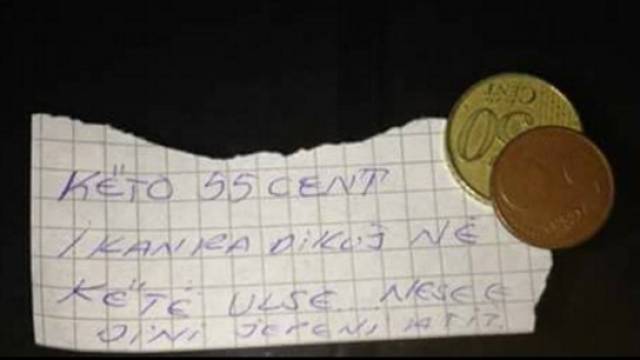 KËTO 55 CENT
I KAN RA DIKUJ NË
KËTË ULSE... NESE E
DINI JEPENI
50
CENT